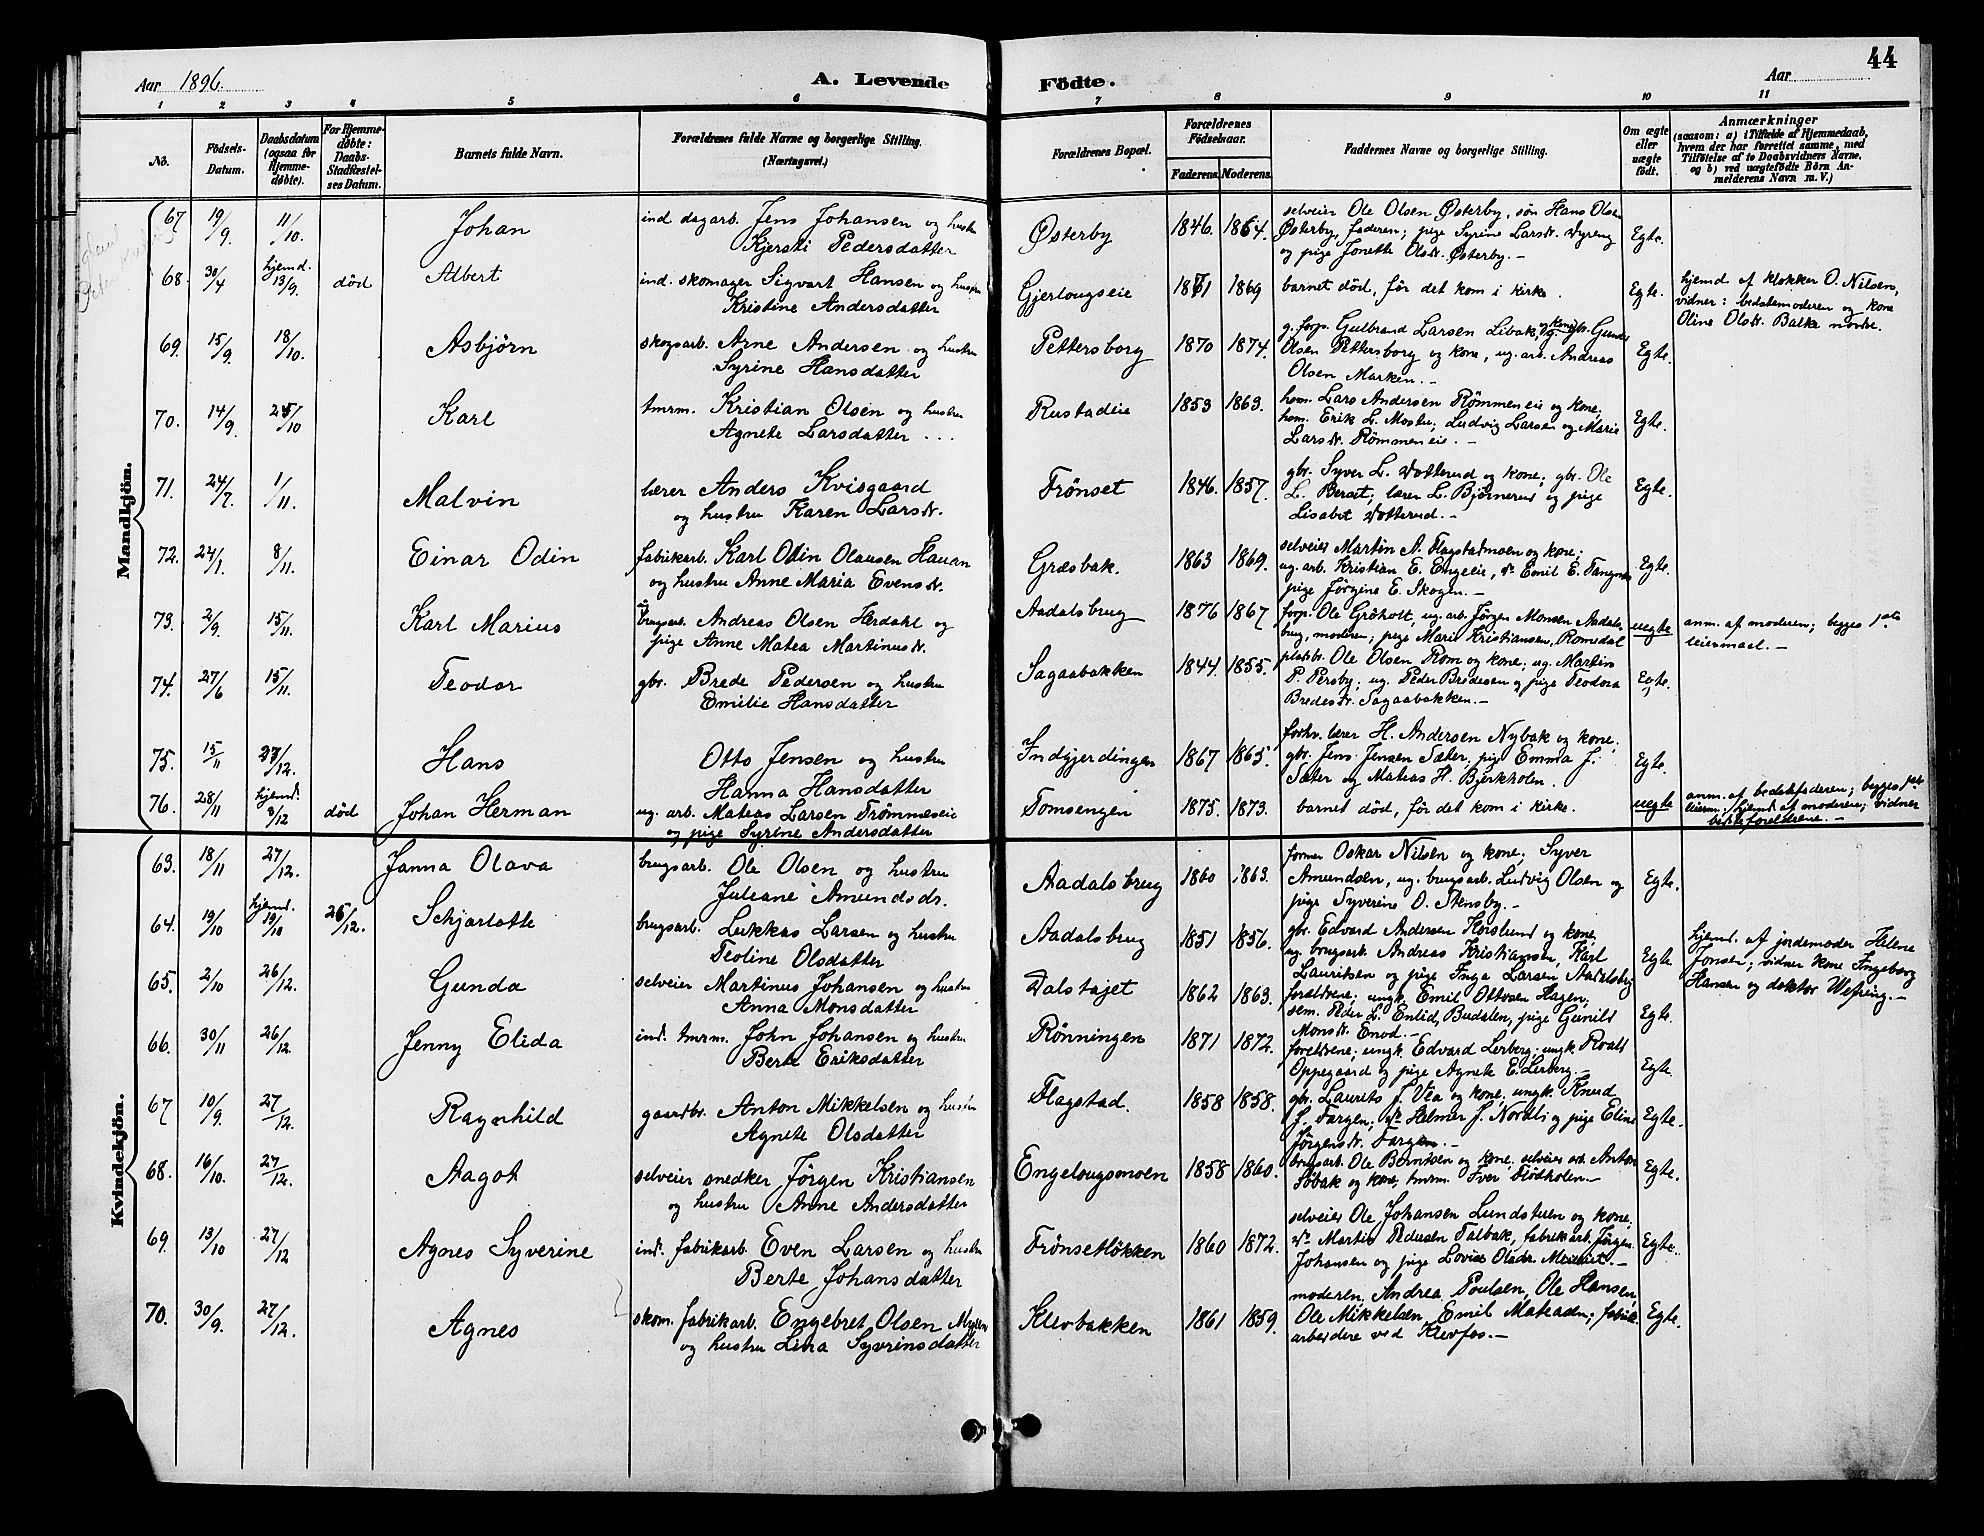 44
Aar 1896.
A. Levende Födte.
Aar
1 2 3 4 5 6 7 8 9 10 11
No.
Födsels-
Datum.
Daabsdatum
(ogsaa for
Hjemme-
döbte).
For Hjemme-
döbte:
Daabs-
Stadfæstel-
ses Datum.
Barnets fulde Navn.
Forældrenes fulde Navne og borgerlige Stilling.
(Næringsvei.)
Forældrenes Bopæl.
Forældrenes
Födselsaar.
Faderens. Moderens.
Faddernes Navne og borgerlige Stilling.
Om ægte
eller
uægte
födt.
Anmærkninger
(saasom: a) i Tilfælde af Hjemmedaab,
hvem der har forrettet samme, med
Tilföielse af to Daabsvidners Navne,
og b) ved uægtefödte Börn An-
melderens Navn m. V.)
Mandkjön.
67 19/9 11/10. Johan
ind dagarb. Jens Johansen og hustru
Kjersti Pedersdatter
Østerby 1846. 1864.
selveier Ole Olsen Østerby, søn Hans Olsen
Østerby, faderen; pige Syrine Larsdr. Dyreng
og pige Jonette Olsdr. Østerby.—
Egte.
68. 30/4 hjemd. 13/9. død Albert
ind. skomager Sigvart Hansen og hustru
Kristine Andersdatter
Gjerlougseie 1861 1869
barnet død, før det kom i kirke.
Egte.
hjemd. af klokker O. Nilsen,
vidner: bedstemoderen og kone
Oline Olsdr. Balke nordre.
69. 15/9. 18/10. Asbjörn
skogsarb. Arne Andersen og hustru
Syrine Hansdatter
Pettersborg 1870 1874.
g. forp. Gulbrand Larsen Libak, og kone, gbr. Gunder
Olsen Pettersborg og kone, ug. arb. Andreas
Olsen Marken.—
Egte.
70. 14/9. 25/10 Karl
tmrm. Kristian Olsen og hustru
Agnete Larsdatter . . .
Rustadeie 1853 1863.
hom. Lars Andersen Rømmeneie og kone;
hom. Erik L. Mostu; Ludvig Larsen og Marie
Larsdr. Rømmeneie.—
Egte.
71. 24/7. 1/11. Malvin
lærer Anders Kvisgaard
og hustru Karen Larsdr.
Frønset 1846. 1857.
gbr. Syver L. Dotterud og kone; gbr. Ole
L. Berset; lærer L. Bjørnerud og pige
Lisabet Dotterud.—
Egte.
72. 24/1. 8/11. Einar Odin
fabrikarb. Karl Odin Olausen Hauan
og hustru Anne Maria Evensdr.
Græsbak. 1863 1869.
selveier Martin A. Flagstadmoen og kone;
ug. arb. Kristian E. Engeie, do Emil E. Tangnes
pige Jørgine E. Skogen.—
Egte.
73. 2/9. 15/11. Karl Marius
brugsarb. Andreas Olsen Hærdahl og
pige Anne Matea Martinusdr.
Aadalsbrug 1876 1867
forp. Ole Grøholt, ug. arb. Jørgen Monsen Aadals-
brug, moderen; pige Marie Kristiansen, Romedal
uegte
anm. af moderen; begges 1ste
leiermaal.—
74. 27/6 15/11. Teodor
gbr. Brede Pedersen og hustru
Emilie Hansdatter
Sagaabakken 1844 1855.
pladsbr. Ole Olsen Rom og kone; ug. Martin
P. Persby; ug. Peder Bredesen og pige Teodora
Bredesdr. Sagaabakken.—
Egte.
75. 15/11 27/12. Hans
Otto Jensen og hustru
Hanna Hansdatter
Indgjerdingen 1867 1865.
forhv. lærer H. Andersen Nybak og kone;
gbr. Jens Jensen Sæter, pige Emma J.
Sæter og Mateas H. Bjerkholen.
Egte.
76. 28/11 hjemd. 3/12 død Johan Herman
ug. arb. Mateas Larsen Frømmeseie
og pige Syrine Andersdatter
Tomsengen 1875. 1873.
barnet død, før det kom i kirke.
uegte
anm. af bedstefaderen; begges 1ste
leierm. / hjemd. af moderen; vidner
bedsteforeldrene.—
Kvindekjön.
63. 18/11 27/12. Janna Olava
brugsarb. Ole Olsen og hustru
Juliane Amundsdr.
Aadalsbrug 1860 1863.
former Oskar Nilsen og kone; Syver
Amundsen, ug. brugsarb. Ludvig Olsen og
pige Syverine O. Stensby.—
Egte.
64. 19/10 hjemd. 19/10 26/12. Schjarlotte
brugsarb. Lukkas Larsen og hustru
Teoline Olsdatter
Aadalsbrug 1851 1856.
gbr. Edvard Andersen Horslund og kone,
ug. brugsarb. Andreas Kristiansen, Karl
Lauritsen og pige Inga Larsen Aadalsbrg
Egte
hjemd. af jordemoder Helene
Jonsen; vidner kone Ingeborg
Hansen og doktor Wefring.—
65. 2/10 26/12. Gunda
selveier Martinus Johansen og hustru
Anna Monsdatter
Dalstøjet 1862 1863.
foreldrene; ungk. Emil Ottosen Hagen,
sem. Peder L. Enlid, Budalen, pige Gunild
Monsdr. Enod.—
Egte.
66. 30/11 26/12. Jenny Elida
ind. tmrm. John Johansen og hustru
Berte Eriksdatter
Rønningen 1871 1872.
foreldrene; ungk. Edvard Lerberg; ungk. Roald
Oppegaard og pige Agnete E. Lerberg.—
Egte.
67 10/9. 27/12. Ragnhild
gaardbr. Anton Mikkelsen og hustru
Agnete Olsdatter
Flagstad. 1858 1858.
gbr. Laurits J. Vea og kone; ungk. Knud
J. Fargen; do Helmer J. Nordli og pige Eline
Jørgensdr. Fargen.—
Egte.
68. 16/10. 27/12. Aagot
selveier snedker Jørgen Kristiansen
og hustru Anne Andersdatter
Engelougsmoen 1858 1860.
brugsarb. Ole Berntsen og kone, selveier arb. Anton
Søbak og kone, tmrm. Iver Flødholen.—
Egte.
69. 13/10 27/12 Agnes Syverine
ind. fabrikarb. Even Larsen og hustru
Berte Johansdatter
Frønsetløkken 1860 1872.
selveier Ole Johansen Lundstuen og kone;
do Martin Pedersen Talbak, fabrikarb. Jørgen
Johansen og pige Lovise Olsdr.
Egte.
70. 30/9. 27/12. Agnes
skom. fabrikarb. Engebret Olsen
og hustru Lina Syverinsdatter
Klevbakken 1861 1859.
moderen, Andrea Poulsen, Ole Hansen,
Ole Mikkelsen, Emil Mateaden; fabrik-
arbeidere ved Klevfos.—
Egte.